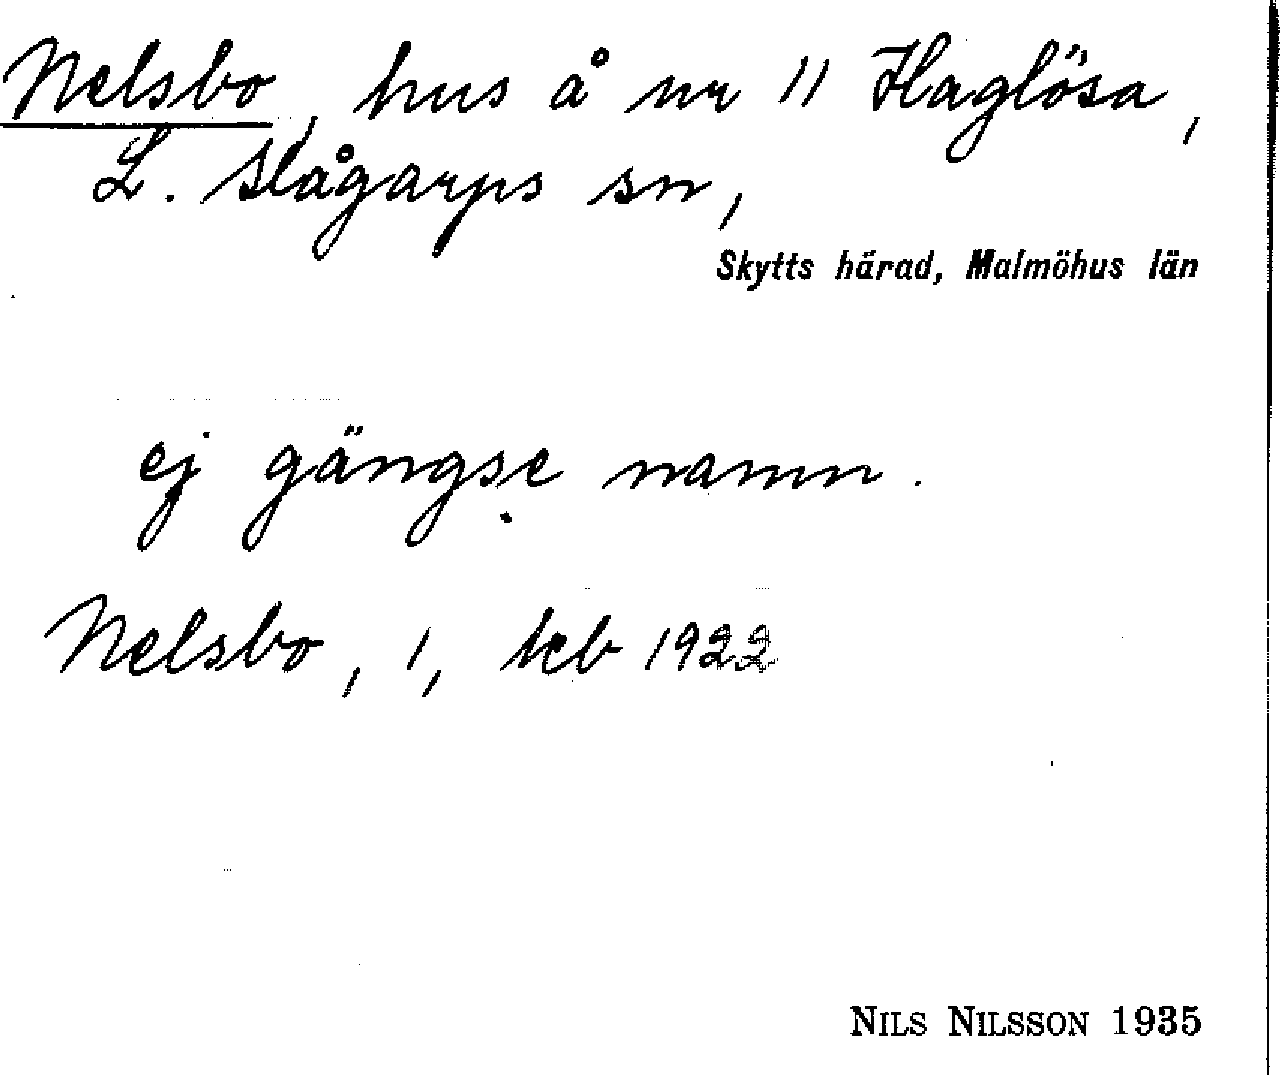 Nelsbo, hus å nr 11 Haglösa,
L. Slågarps sn,
Skytts härad, Malmöhus län
ej gängse namn.
Nelsbo, 1, kb 1922
NILS NILSSON 1935